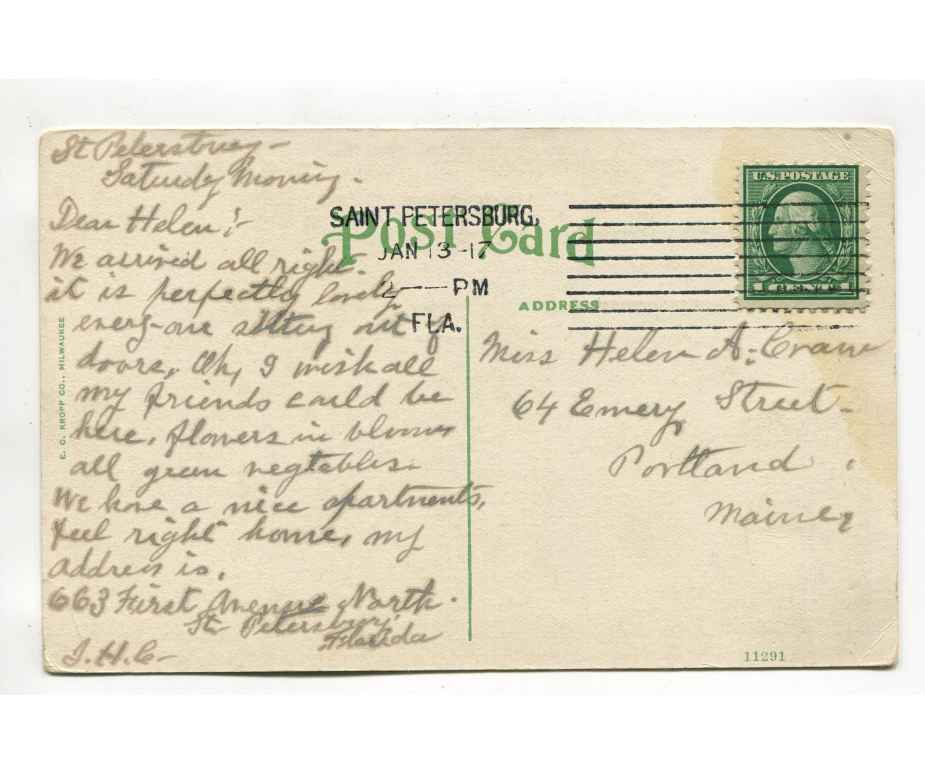 St Petersburg –
Saturdy Morning.
Dear Helen :-
We arrived all right.
it is perfectly lovely
every-one sitting out of
doors, Oh, I wish all
my friends could be
here, flowers in bloom
all green vegtables.
We have a nice apartments,
feel right home, my
address is,
663 First Avenue North.
St. Petersburg
Florida
I.H.C-
E. C. KROPP CO., MILWAUKEE
Post Card
SAINT PETERSBURG,
JAN 13 -17
PM
FLA.
ADDRESS
U.S. POSTAGE
Miss Helen A. Crane
64 Emery Street-
Portland,
Maine,
11291